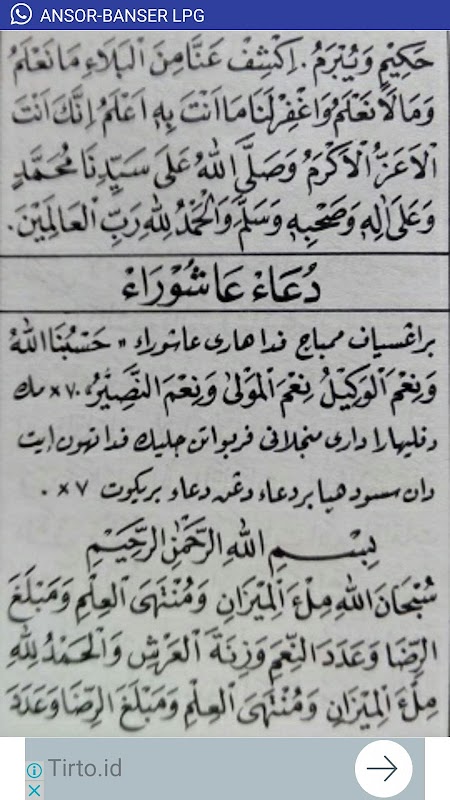 ANSOR-BANSER LPG
حَكِيْمٍ وَيُبْرَمُ. اِكْشِفْ عَنَّا مِنَ الْبَلَاءِ مَا نَعْلَمُ
وَمَا لَا نَعْلَمُ وَاغْفِرْ لَنَا مَا اَنْتَ بِهِ اَعْلَمُ اِنَّكَ اَنْتَ
الْاَعَزُّ الْاَكْرَمُ وَصَلَّى اللهُ عَلَى سَيِّدِنَا مُحَمَّدٍ
وَعَلَى اٰلِهِ وَصَحْبِهِ وَسَلَّمَ وَالْحَمْدُ لِلهِ رَبِّ الْعَالَمِيْنَ.
دُعَاءْ عَاشُوْرَاءْ
براڠسياف ممباج فدا هاري عاشوراء " حَسْبُنَا اللهُ
وَنِعْمَ الْوَكِيْلُ نِعْمَ الْمَوْلٰى وَنِعْمَ النَّصِيْرُ، ٧٠× مك
دفليهارا داري منجلاني فربواتن جليك فدا تهون ايت
دان سسودهيا بردعاء دڠن دعاء بريكوت ٧ × .
بِسْمِ اللهِ الرَّحْمٰنِ الرَّحِيْمِ
سُبْحَانَ اللهِ مِلْءَ الْمِيْزَانِ وَمُنْتَهَى الْعِلْمِ وَمَبْلَغَ
الرِّضَا وَعَدَدَ النِّعَمِ وَزِنَةَ الْعَرْشِ وَالْحَمْدُ لِلهِ
مِلْءَ الْمِيْزَانِ وَمُنْتَهَى الْعِلْمِ وَمَبْلَغَ الرِّضَا وَعَدَدَ
Tirto.id